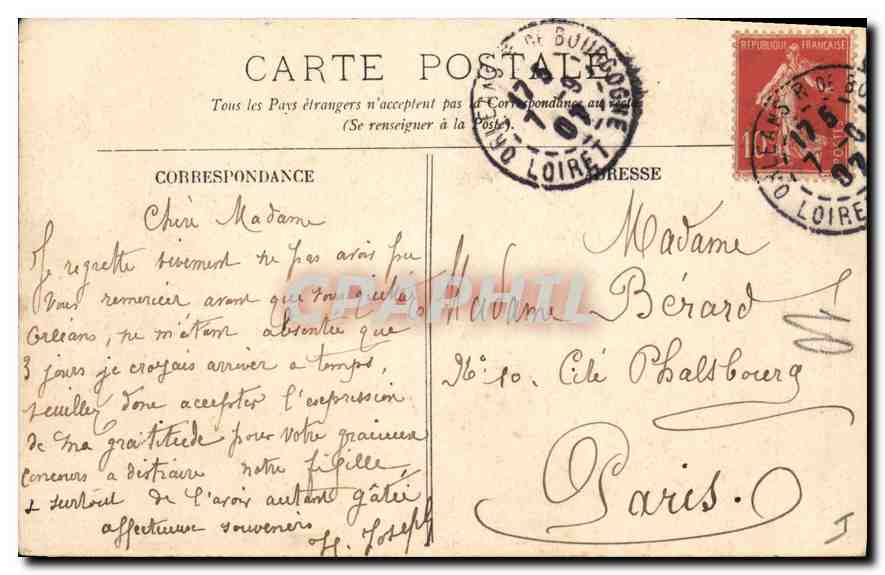 CARTE POSTALE
Tous les Pays étrangers n'acceptent pas la Correspondance au recto
(Se renseigner à la Poste).
CORRESPONDANCE
Chère Madame
Je regrette vivement ne pas avoir pu
vous remercier avant que vous quittiez
Orléans, ne m'étant absentée que
3 jours je croyais arriver a temps,
veuillez donc accepter l'expression
de ma gratitude pour votre gracieux
concours a distraire notre
& surtout de l'avoir autant gâtée
affectueux souvenirs
Joseph
ADRESSE
Madame
Madame Bérard
No 10. Cité Phalsbourg
Paris.
REPUBLIQUE FRANÇAISE
POSTES
ORLEANS R. DE BOURGOGNE
LOIRET
ORLEANS R. DE BO
LOIRE
CPAPHIL